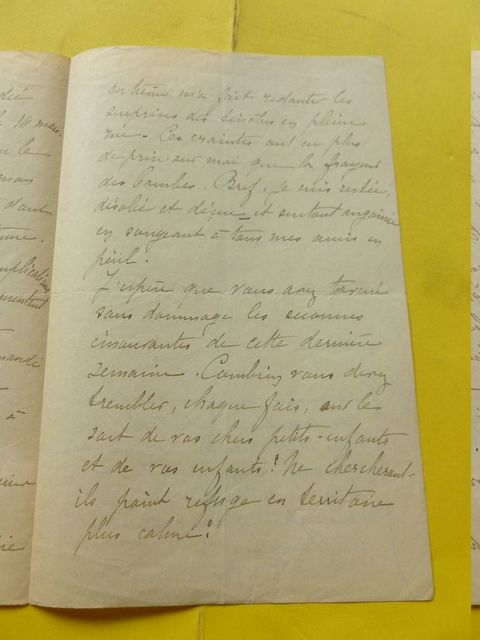 dié
le
dant
mplications
mentent
mandé
à
en hême m'a fait redouter les
surprises des sinistres en pleine
rue. Ces craintes ont eu plus
de prise sur moi que la frayeur
des bombes. Bref, je suis restée,
désolée et déçue et surtout angoissée
en songeant à tous mes amis en
péril.
J'espère que vous avez traversé
sans dommage les secousses
émouvantes de cette dernière
semaine. Combien vous devez
trembler, chaque fois, sur le
sort de vos chers petits-enfants
et de vos enfants! Ne chercheront-
ils point refuge en territoire
plus calme?